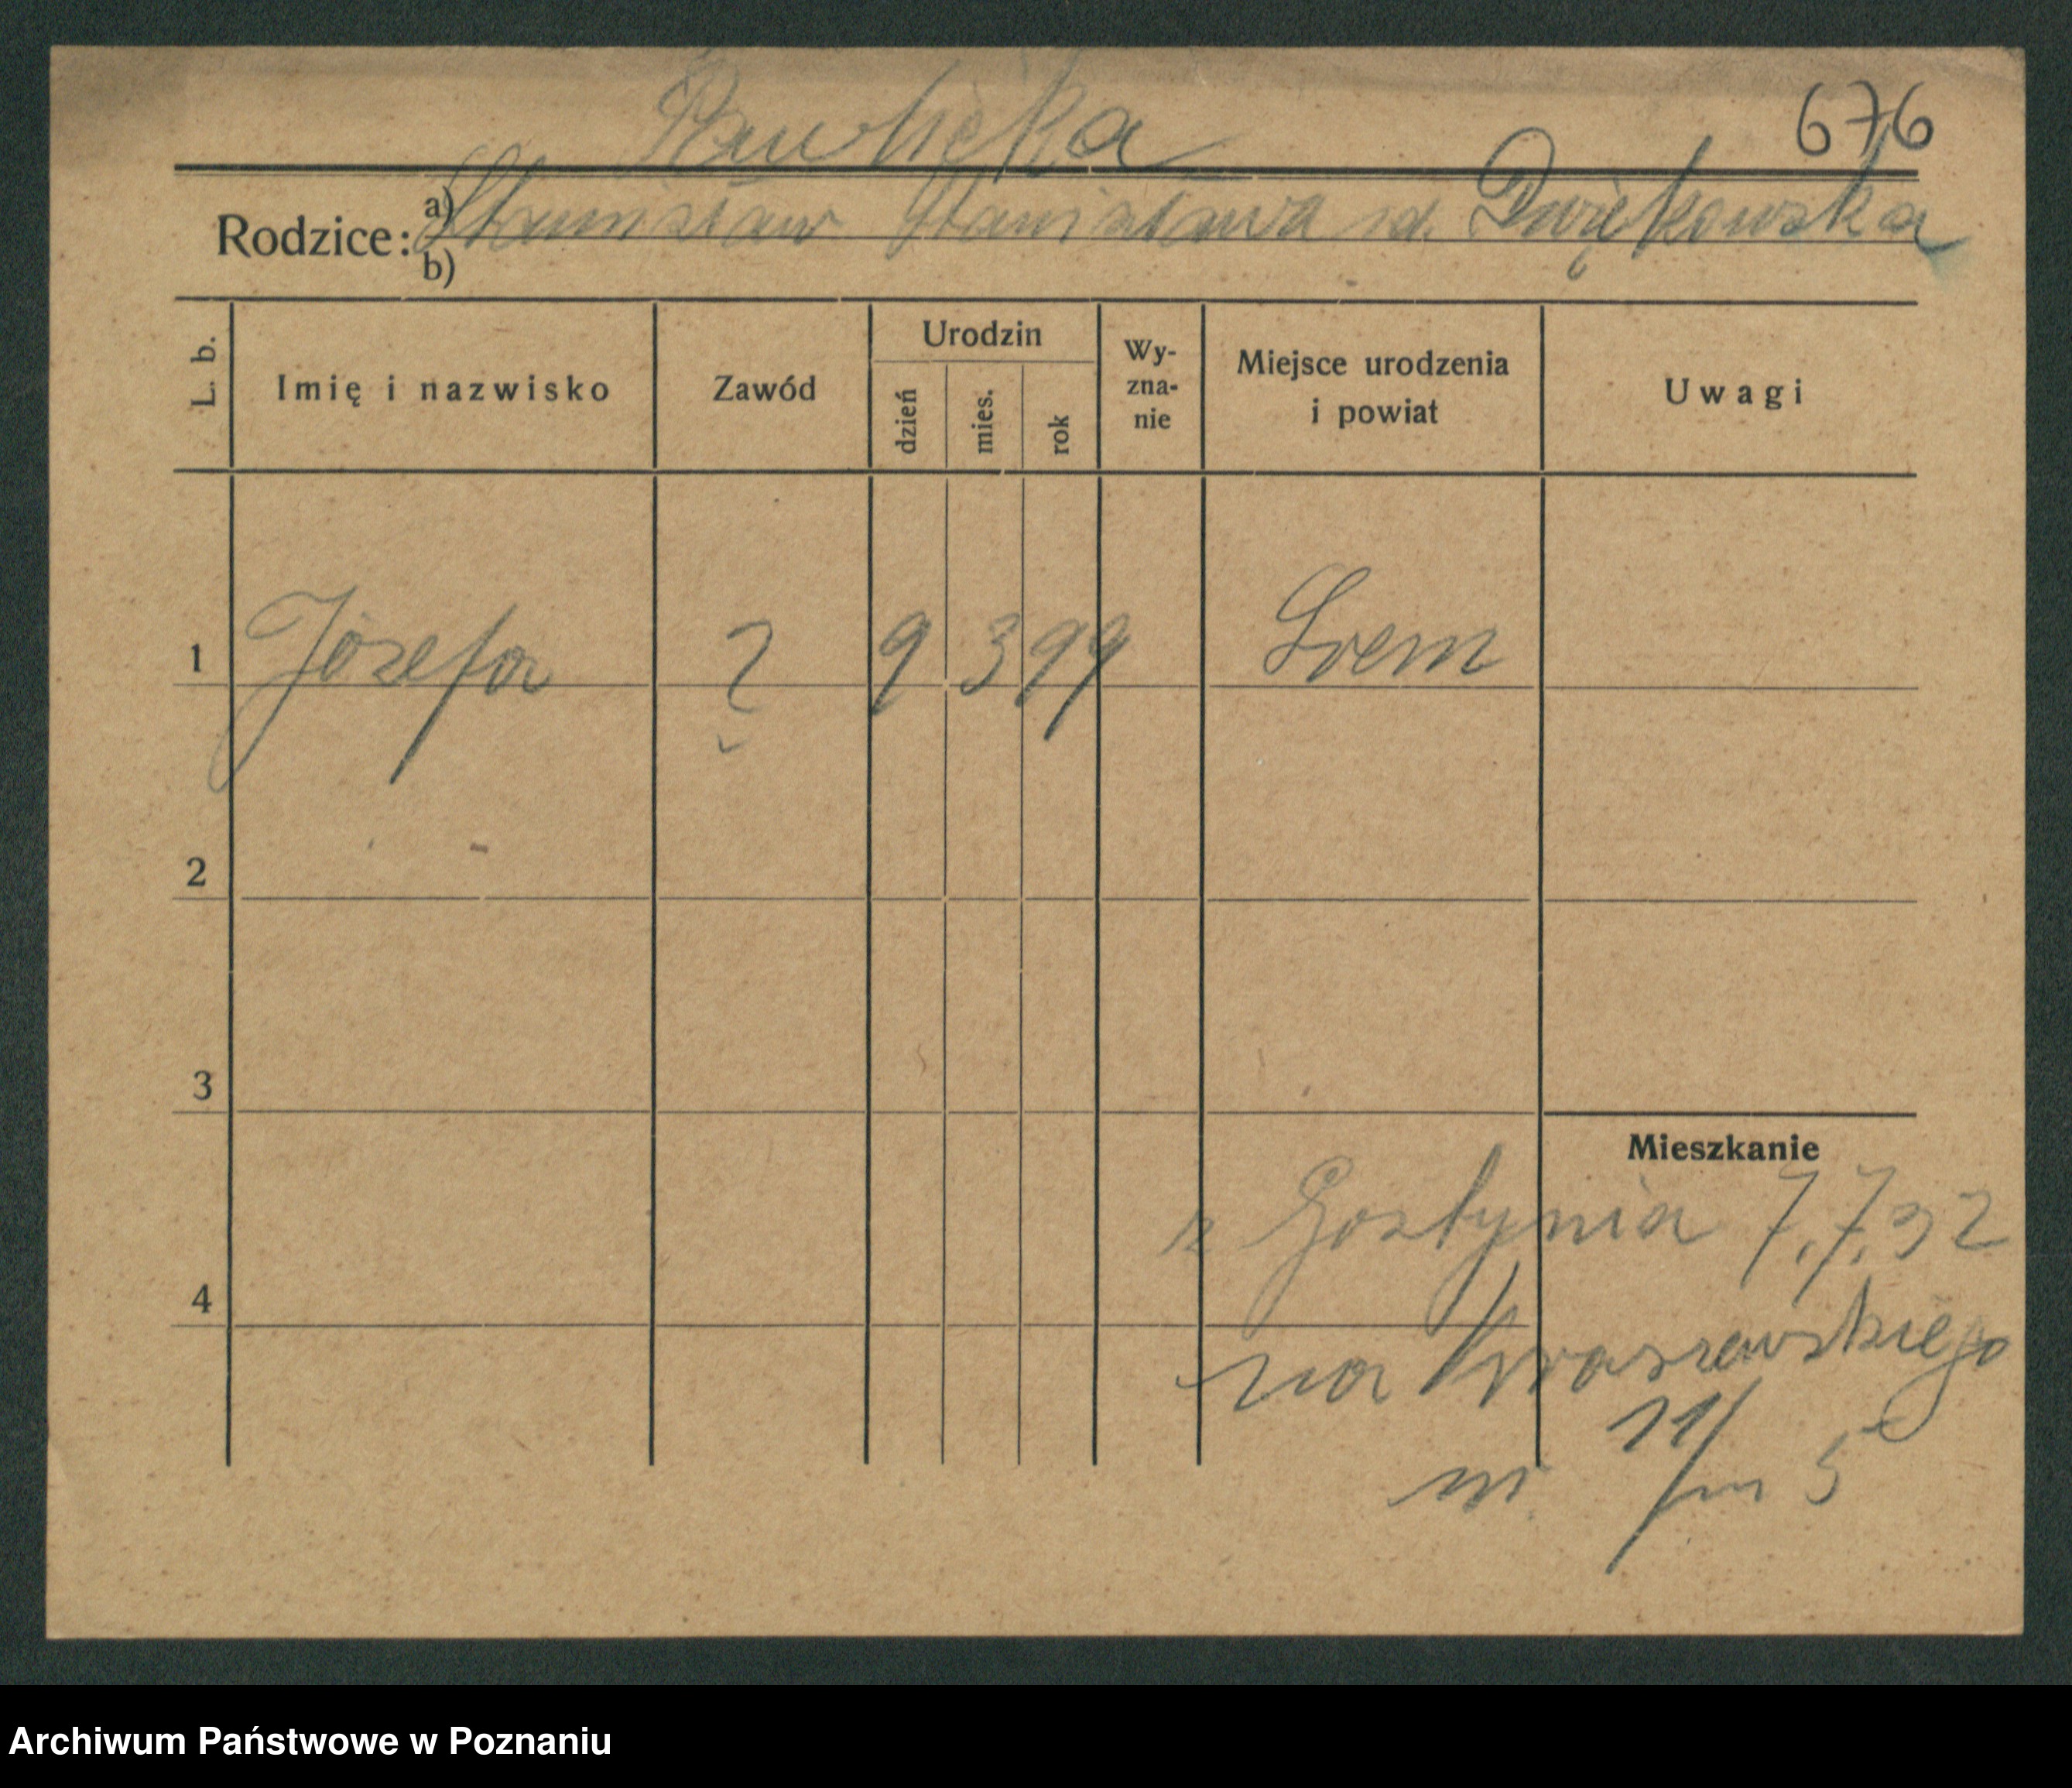 Pawlicka
676
Rodzice: a) Stanisław Stanisława
b)
L. b.
Imię i nazwisko
Zawód
Urodzin
dzień
mies.
rok
Wy-
zna-
nie
Miejsce urodzenia
i powiat
Uwagi
1 Józefa ? 9 3 99 Śrem
2
3
Mieszkanie
z Gostynia 7.7.32
4
na Kraszewskiego
11/
m 5
Archiwum Państwowe w Poznaniu